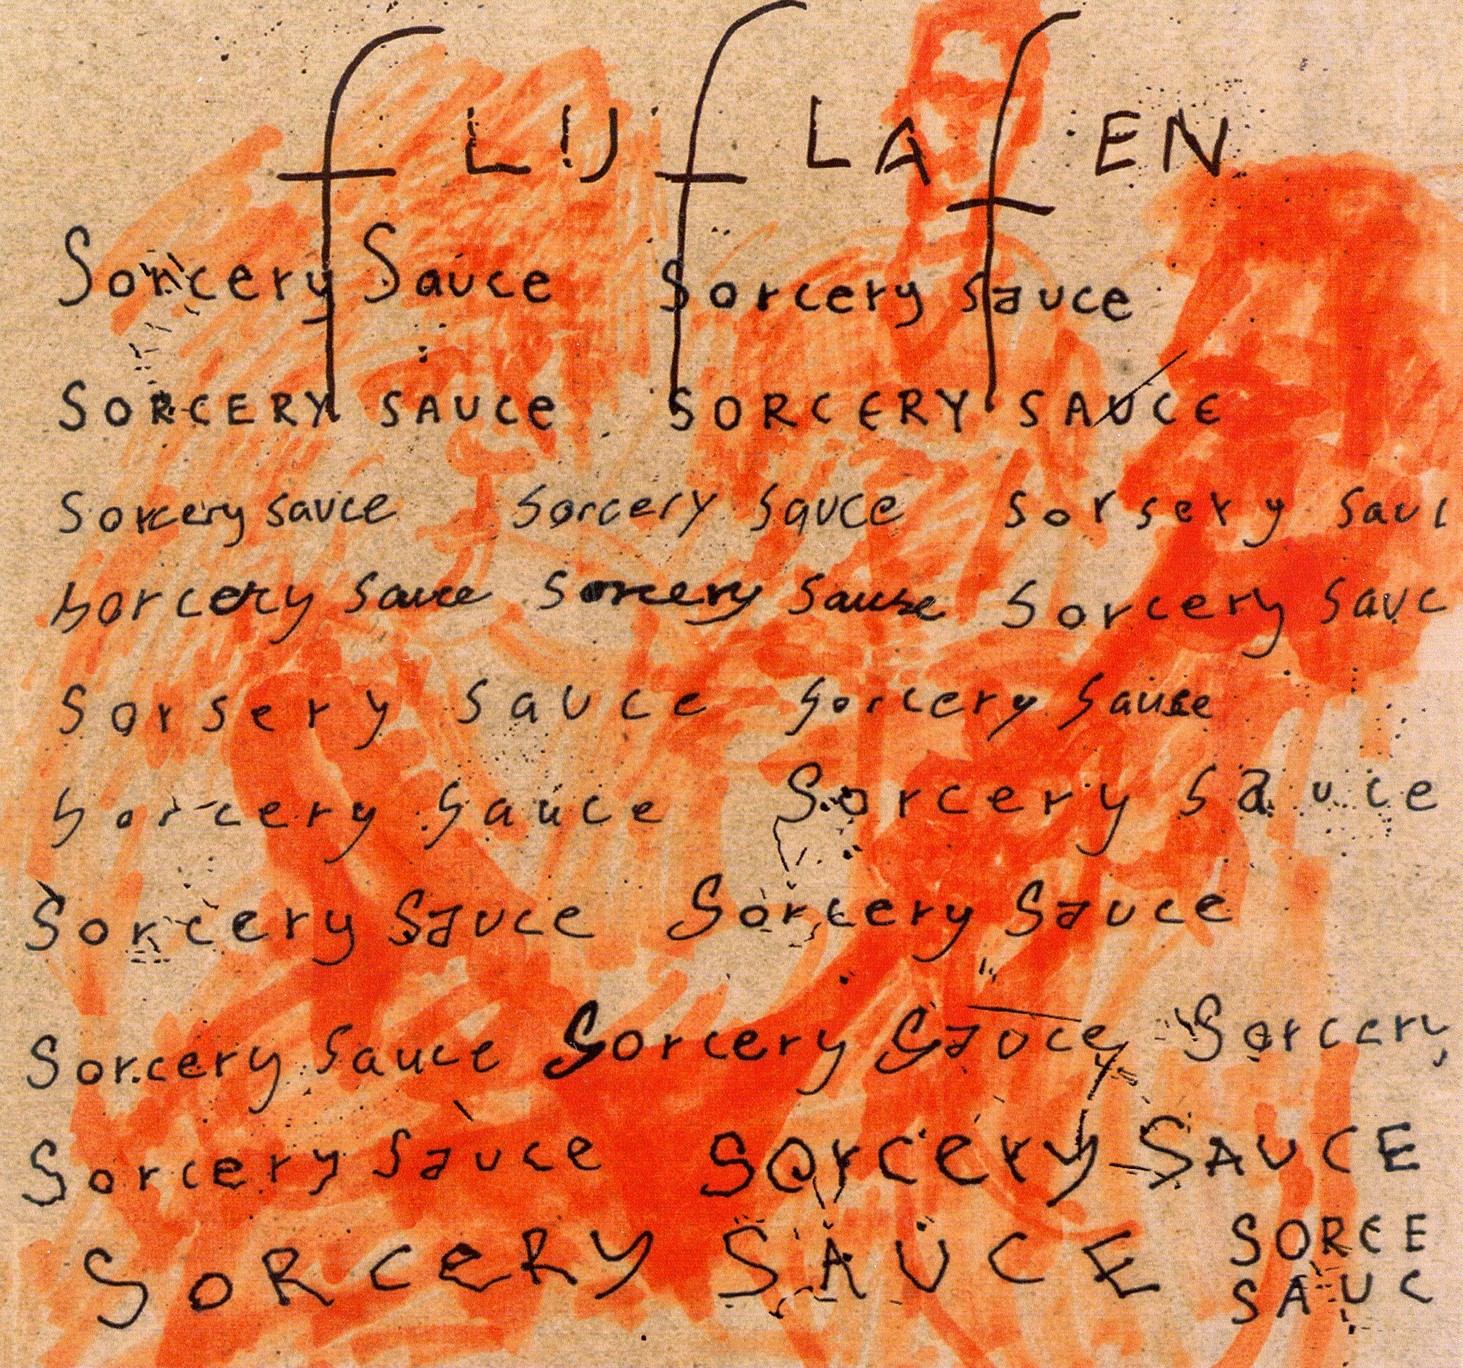 fLIJfLAfEN
Sorcery Sauce Sorcery sauce
SORCERY SAUCe SORCERY SAUCE
Sorcery sauce Sorcery Sauce Sorsery Sauc
Sorcery Sauce Sorcery Sause Sorcery Sauc
Sorsery Sauce Sorcery Sause
Sorcery Sauce Sorcery Sauce
Sorcery Sauce Sorcery Sauce
Sorcery Sauce Sorcery Sauce Sorcery
Sorcery Sauce Sorcery SAUCE
SoRCeRY SAUCE SORCE
SAUC